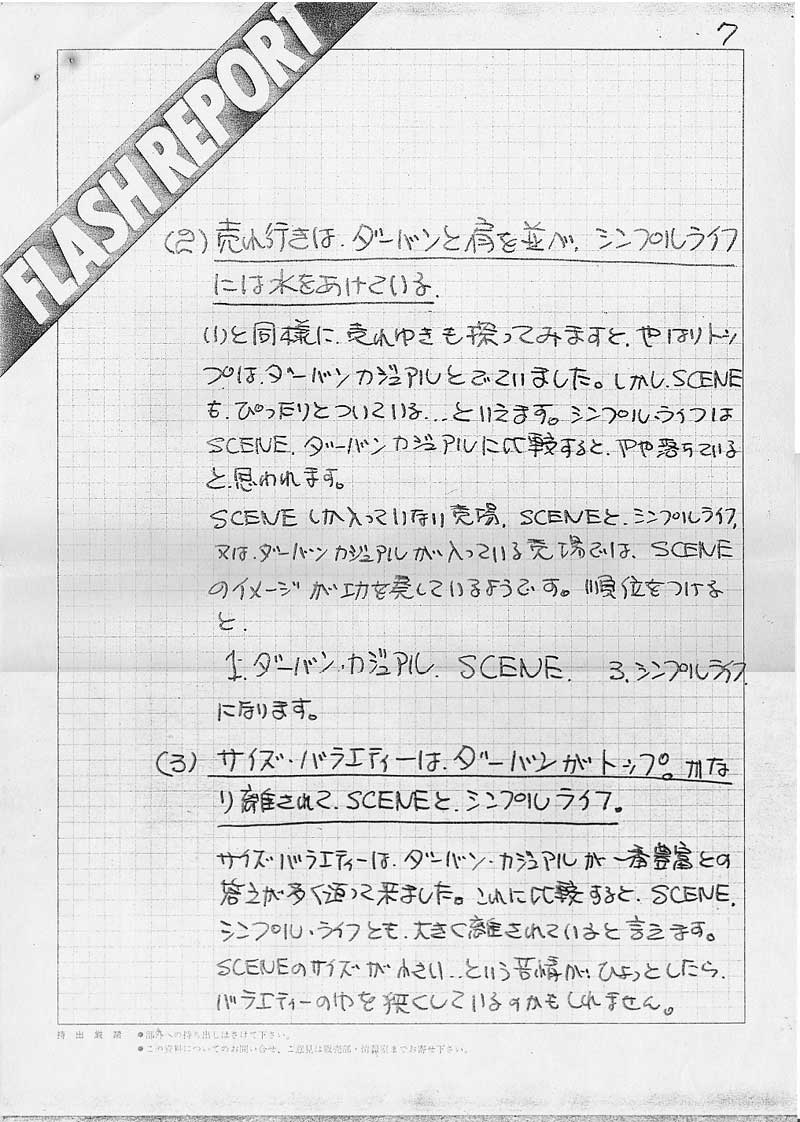 7
FLASH REPORT
(2) 売れ行きは、ダーバンと肩を並べ、シンプルライフ
には水をあけている。
(1)と同様に、売れゆきも探ってみますと、やはりトッ
プは、ダーバンカジュアルとでていました。しかし、SCENE
も、ぴったりとついている...といえます。シンプル・ライフは
SCENE、ダーバンカジュアルに比較すると、やや落ちている
と思われます。
SCENEしか入っていない売場、SCENEと、シンプルライフ、
又は、ダーバンカジュアルが入っている売場では、SCENE
のイメージが功を発しているようです。順位をつける
と、
1. ダーバン・カジュアル、SCENE. 3. シンプルライフ
になります。
(3) サイズ・バラエティーは、ダーバンがトップ。かな
り離されて、SCENEと、シンプルライフ。
サイズバラエティーは、ダーバン・カジュアルが一番豊富との
答えが多く返って来ました。これに比較すると、SCENE、
シンプル・ライフとも、大きく離されていると言えます。
SCENEのサイズが小さい..という苦情が、ひょっとしたら、
バラエティーの巾を狭くしているのかもしれません。
持出厳禁 ●部外への持ち出しはさけて下さい。
●この資料についてのお問い合せ、ご意見は販売部・情報室までお寄せ下さい。